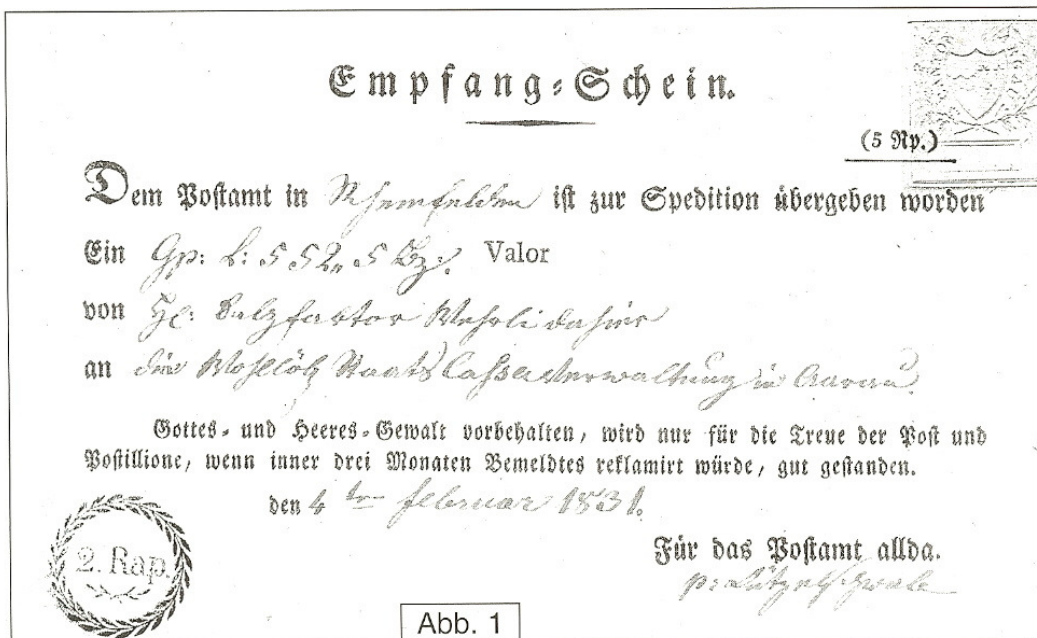 Empfang-Schein.
CANTON ARGAU
(5 Rp.)
Dem Postamt in Rheinfelden ist zur Spedition übergeben worden
Ein Gp: L: 552, 5 Bz: Valor
von Hl: Salzfaktor Wehrli dahier
an die Wohllöb Staats Cassaverwaltung in Aarau
Gottes- und Heeres-Gewalt vorbehalten, wird nur für die Treue der Post und
Postillione, wenn inner drei Monaten Bemeldtes reklamirt würde, gut gestanden.
den 4ten februar 1831.
2. Rap.
Für das Postamt allda.
Abb. 1